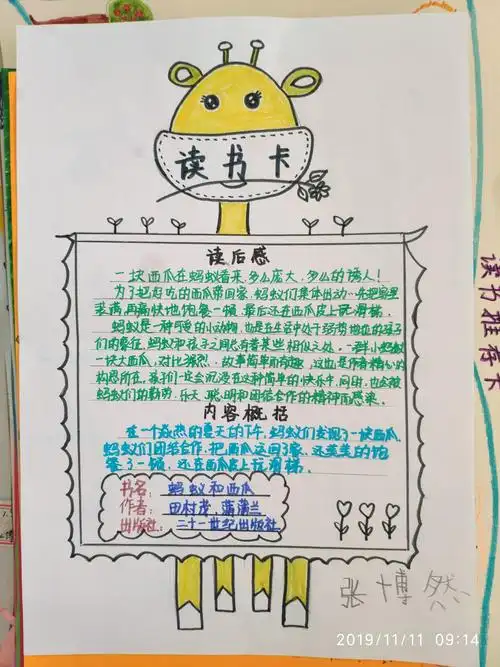 读书卡
读后感
一块西瓜在蚂蚁看来,多么庞大,多么的诱人!
为了把好吃的西瓜带回家,蚂蚁们集体出动,先把家里
装满,再痛快地饱餐一顿,最后还在西瓜皮上玩滑梯。
蚂蚁是一种可爱的小动物,也是在生活中处于弱势地位的孩子
们的象征,蚂蚁和孩子之间总有着某些相似之处。一群小蚂蚁
一块大西瓜,对比强烈,故事简单而有趣,这也是作者精心的
构思所在,孩子们一定会沉浸在这种简单的快乐中,同时,也会被
蚂蚁们的勤劳、乐天、聪明和团结合作的精神而感染。
内容概括
在一个炎热的夏天的下午,蚂蚁们发现了一块西瓜,
蚂蚁们团结合作,把西瓜运回了家,还美美的饱
餐了一顿,还在西瓜皮上玩滑梯。
书名:蚂蚁和西瓜
作者:田村茂、蒲蒲兰
出版社:二十一世纪出版社
张博然
读书推荐卡
2019/11/11 09:14